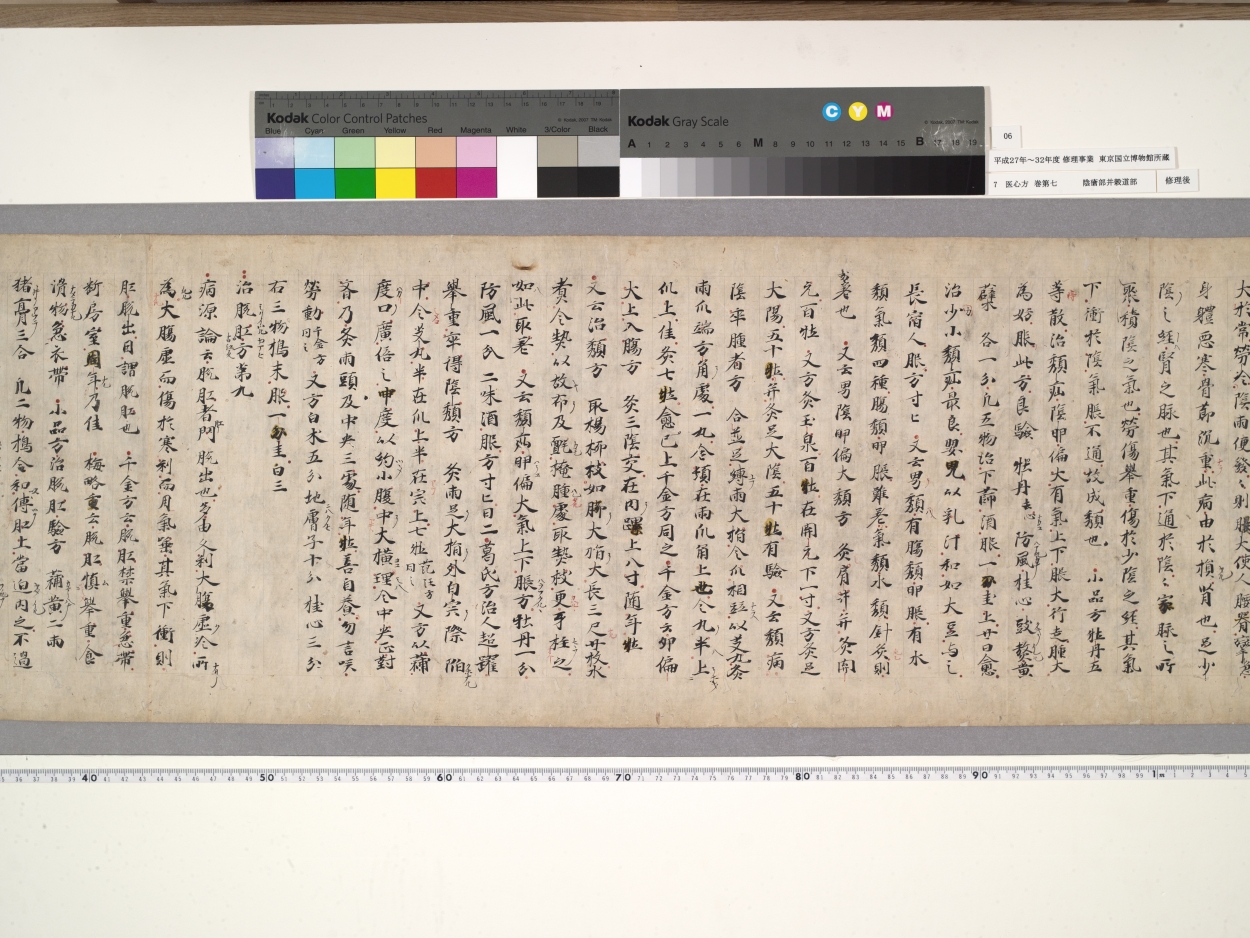 Kodak Color Control Patches
Blue Cyan Green Yellow Red Magenta White 3/Color Black
Kodak Gray Scale
C Y M
A 1 2 3 4 5 6 M 8 9 10 11 12 13 14 15 B 17 18 19
06
平成27年～32年度 修理事業 東京国立博物館所蔵
7 医心方 巻第七 陰瘡部并穀道部
修理後
身體惡寒骨節沉重此病由於損腎也足少
陰之經腎之脉也其氣下通於陰々家脉之所
聚積陰之氣也勞傷舉重傷於少陰之經其氣
下衝於陰氣脹不通故成㿗也 小品方牡丹五
等散治㿗疝陰卵偏大有氣上下脹大行走腫大
為妨服此方良驗 牡丹去心 防風桂心豉熬黃
蘗 各一分凡五物治下篩酒服一刀圭上廿日愈
治少小㿗疝最良嬰兒以乳汁和如大豆与之
長宿人服方寸匕 又云男㿗有腸㿗卵脹有水
㿗氣㿗四種腸㿗卵脹難差氣㿗水㿗針灸則
差也 又云男陰卵偏大㿗方 灸肩井并灸開
元百壯 又方灸玉泉百壯在開元下一寸又方灸足
大陽五十壯并灸足大陰五十壯有驗 又云㿗病
陰卒腫者方 合並足縛兩大指令爪相並以艾丸灸
兩爪端方角處一丸令頓在兩爪角上也令丸半上
爪上佳灸七壯愈已上千金方同之千金方云卵偏
大上入腸方 灸三陰交在內踝上八寸随年壯
又云治㿗方 取楊柳枝如脚大指大長三尺廿枚水
煮令熱以故布及氈掩腫處取熱枝更互柱之
如此取差 又云㿗病卵偏大氣上下脹方牡丹一分
防風一分 二味酒服方寸匕日二 葛氏方治人超躍
舉重卒得陰㿗方 灸兩足大指外白完際陷
中令艾丸半在爪上半在完上七壯 又方以蒲
度口廣倍之申度以約小腹中大橫理令中央正對
齊乃灸兩頭及中央三處随年壯善自養勿言咲
勞動千金方同之 又方白木五分地膚子十分桂心三分
右三物搗末服一刀圭日三
治脫肛方第九
病源論云脫肛者肛門脫出也多由久利大腸虛冷所
為大腸虛而傷於寒利而用氣𡎺其氣下衝則
肛脫出因謂脫肛也 千金方云脫肛禁舉重急帶
斷房室周年乃佳 梅略重云脫肛慎舉重食
滑物急衣帶 小品方治脫肛驗方 蒲黃二兩
猪膏三合 凡二物搗令和傅肛上當迫內之不過
40 50 60 70 80 90 1m